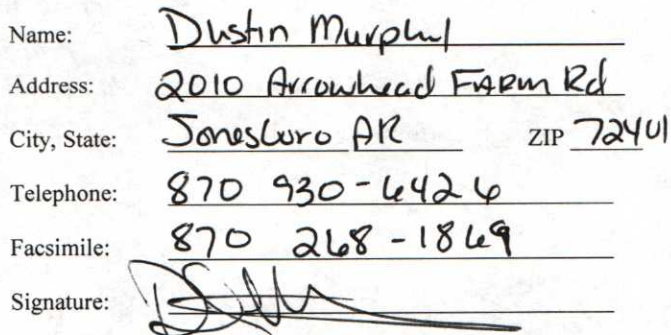 Name: Dustin Murphy
Address: 2010 Arrowhead FARM Rd
City, State: Jonesboro AR ZIP 72401
Telephone: 870 930-6426
Facsimile: 870 268-1869
Signature: